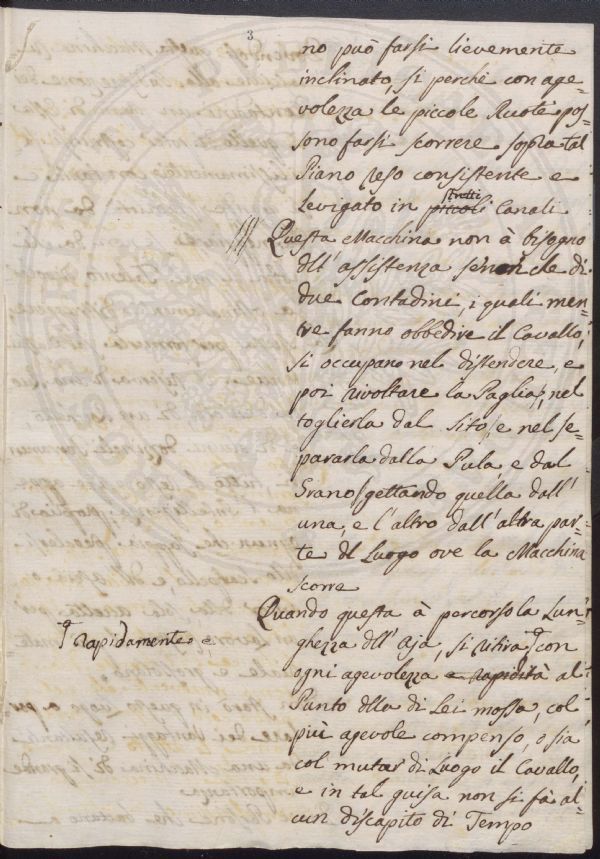 3
no può farsi lievemente
inclinato, si perchè con age-
volezza le piccole Ruote pos-
sono farsi scorrere sopra tal
Piano reso consistente e
Levigato in piccoli stretti Canali
Questa Macchina non à bisogno
dll' assistenza se non che di
due Contadini, i quali men-
tre fanno obbedire il Cavallo,
si occupano nel distendere, e
poi rivoltare la Paglia, nel
toglierla dal sito, e nel se-
pararla dalla Pula e dal
Grano, gettando quella dall'
una, e l'altro dall'altra par-
te dl Luogo ove la Macchina
scorre
Quando questa à percorso la Lun-
ghezza dll' Aja, si ritira con
rapidamente e
ogni agevolezza e rapidità al
Punto dlla di Lei mossa, col
più agevole compenso, o sia
col mutar di Luogo il Cavallo,
e in tal guisa non si fà al-
cun discapito di Tempo